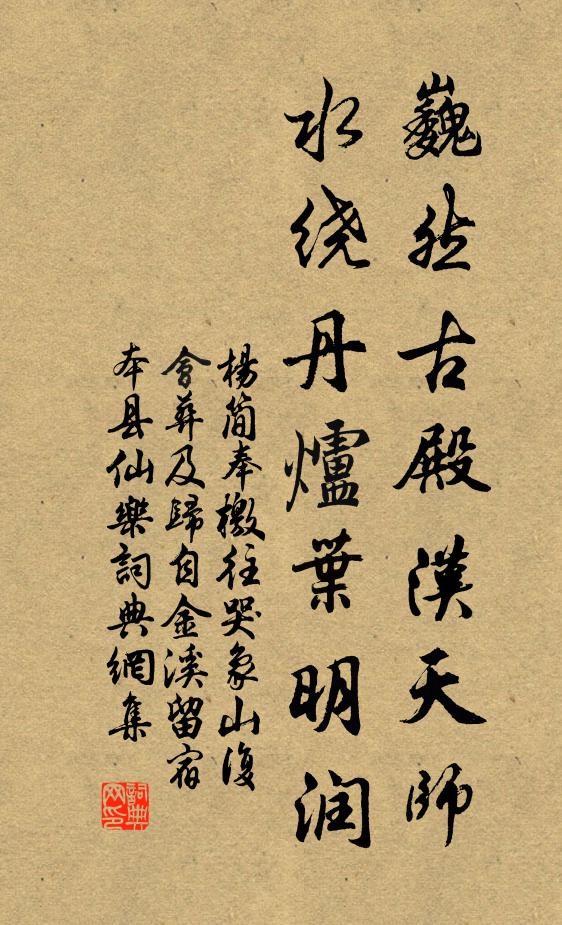 巍然古殿漢天師
水绕丹爐葉明润
楊简奉檄往哭象山復
會葬及歸自金溪留宿
本县仙樂詞典網集
詞典
网印